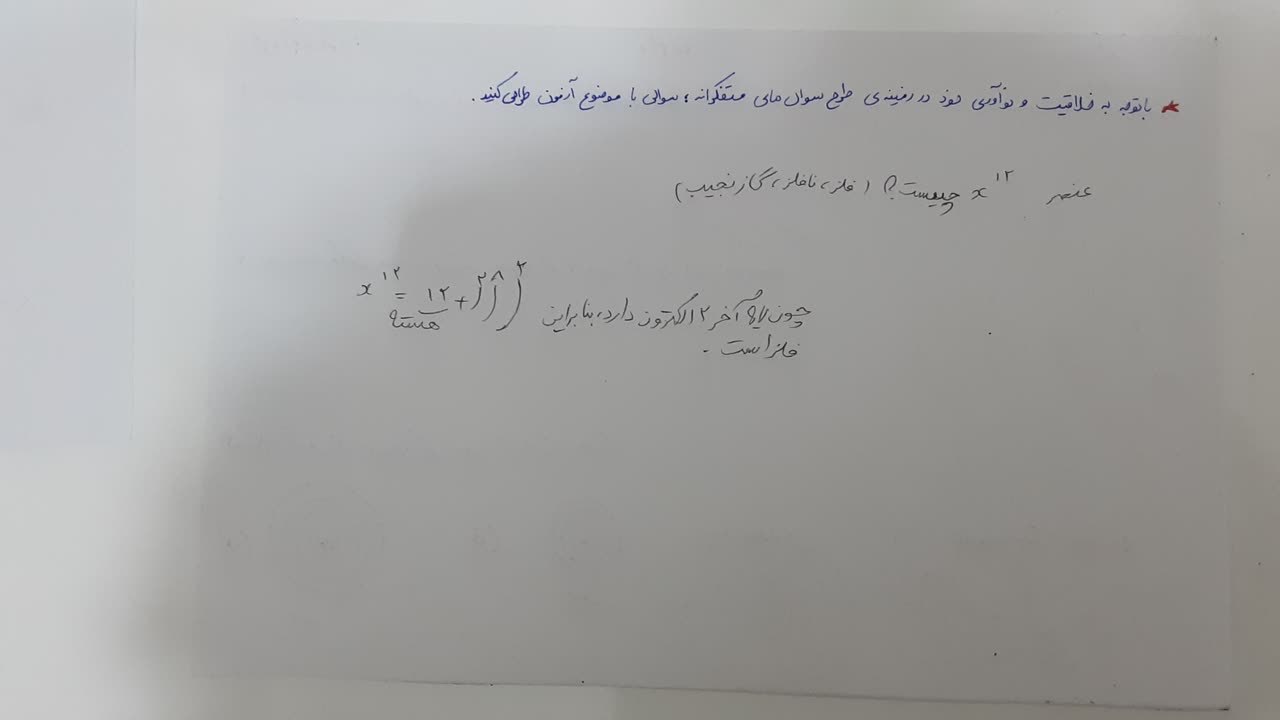 * باتوجه به خلاقیت و نوآوری خود در زمینه ی طرح سوال های متفکرانه ؛ سوالی با موضوع آزمون طراحی کنید.
عنصر x¹² چیست؟ (فلز، نافلز، گاز نجیب)
x¹² = ۱۲+ )۲ )۸ )۲
هسته
چون لایه آخر ۲ الکترون دارد، بنابراین
فلز است.